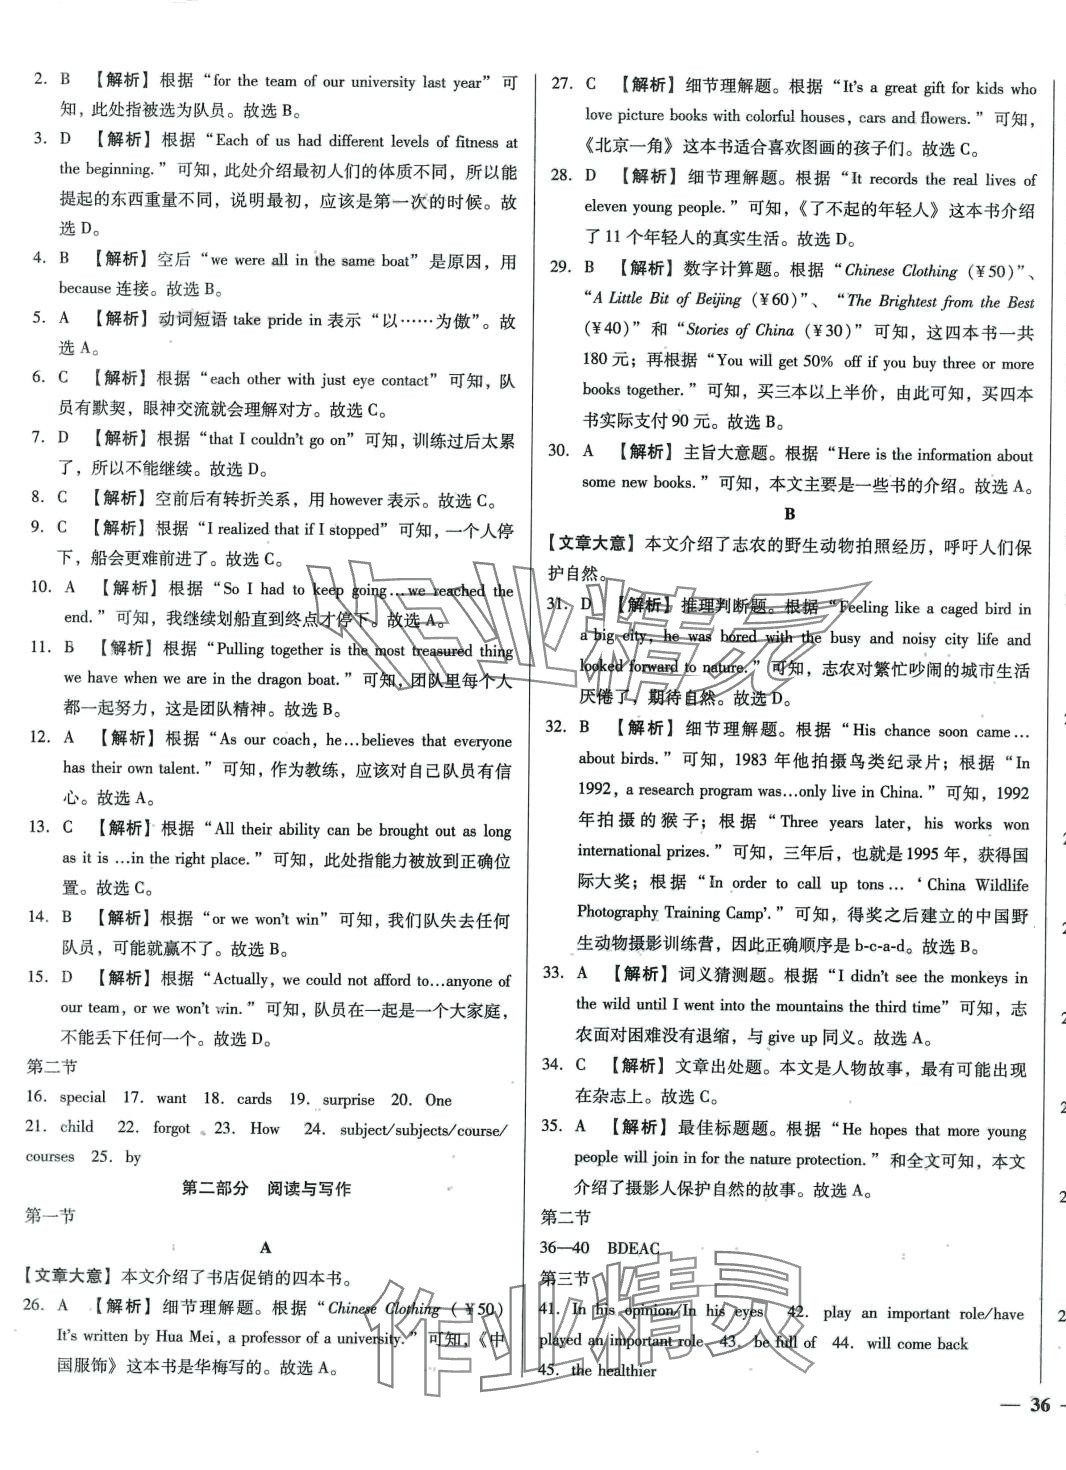 2. B 【解析】根据“for the team of our university last year”可
知，此处指被选为队员。故选 B。
3. D 【解析】根据“Each of us had different levels of fitness at
the beginning.”可知，此处介绍最初人们的体质不同，所以能
提起的东西重量不同，说明最初，应该是第一次的时候。故
选 D。
4. B 【解析】空后“we were all in the same boat”是原因，用
because 连接。故选 B。
5. A 【解析】动词短语 take pride in 表示“以……为傲”。故
选 A。
6. C 【解析】根据“each other with just eye contact”可知，队
员有默契，眼神交流就会理解对方。故选 C。
7. D 【解析】根据“that I couldn't go on”可知，训练过后太累
了，所以不能继续。故选 D。
8. C 【解析】空前后有转折关系，用 however 表示。故选 C。
9. C 【解析】根据“I realized that if I stopped”可知，一个人停
下，船会更难前进了。故选 C。
10. A 【解析】根据“So I had to keep going…we reached the
end.”可知，我继续划船直到终点才停下。故选 A。
11. B 【解析】根据“Pulling together is the most treasured thing
we have when we are in the dragon boat.”可知，团队里每个人
都一起努力，这是团队精神。故选 B。
12. A 【解析】根据“As our coach, he…believes that everyone
has their own talent.”可知，作为教练，应该对自己队员有信
心。故选 A。
13. C 【解析】根据“All their ability can be brought out as long
as it is …in the right place.”可知，此处指能力被放到正确位
置。故选 C。
14. B 【解析】根据“or we won't win”可知，我们队失去任何
队员，可能就赢不了。故选 B。
15. D 【解析】根据“Actually, we could not afford to…anyone of
our team, or we won't win.”可知，队员在一起是一个大家庭，
不能丢下任何一个。故选 D。
第二节
16. special 17. want 18. cards 19. surprise 20. One
21. child 22. forgot 23. How 24. subject/subjects/course/
courses 25. by
第二部分 阅读与写作
第一节
A
【文章大意】本文介绍了书店促销的四本书。
26. A 【解析】细节理解题。根据“Chinese Clothing (￥50)
It's written by Hua Mei, a professor of a university.”可知，《中
国服饰》这本书是华梅写的。故选 A。
27. C 【解析】细节理解题。根据“It's a great gift for kids who
love picture books with colorful houses, cars and flowers.”可知，
《北京一角》这本书适合喜欢图画的孩子们。故选 C。
28. D 【解析】细节理解题。根据“It records the real lives of
eleven young people.”可知，《了不起的年轻人》这本书介绍
了 11 个年轻人的真实生活。故选 D。
29. B 【解析】数字计算题。根据“Chinese Clothing (￥50)”、
“A Little Bit of Beijing (￥60)”、“The Brightest from the Best
(￥40)”和“Stories of China (￥30)”可知，这四本书一共
180 元；再根据“You will get 50% off if you buy three or more
books together.”可知，买三本以上半价，由此可知，买四本
书实际支付 90 元。故选 B。
30. A 【解析】主旨大意题。根据“Here is the information about
some new books.”可知，本文主要是一些书的介绍。故选 A。
B
【文章大意】本文介绍了志农的野生动物拍照经历，呼吁人们保
护自然。
31. D 【解析】推理判断题。根据“Feeling like a caged bird in
a big city, he was bored with the busy and noisy city life and
looked forward to nature.”可知，志农对繁忙吵闹的城市生活
厌倦了，期待自然。故选 D。
32. B 【解析】细节理解题。根据“His chance soon came…
about birds.”可知，1983 年他拍摄鸟类纪录片；根据“In
1992, a research program was…only live in China.”可知，1992
年拍摄的猴子；根据“Three years later, his works won
international prizes.”可知，三年后，也就是 1995 年，获得国
际大奖；根据“In order to call up tons…‘China Wildlife
Photography Training Camp'.”可知，得奖之后建立的中国野
生动物摄影训练营，因此正确顺序是 b-c-a-d。故选 B。
33. A 【解析】词义猜测题。根据“I didn't see the monkeys in
the wild until I went into the mountains the third time”可知，志
农面对困难没有退缩，与 give up 同义。故选 A。
34. C 【解析】文章出处题。本文是人物故事，最有可能出现
在杂志上。故选 C。
35. A 【解析】最佳标题题。根据“He hopes that more young
people will join in for the nature protection.”和全文可知，本文
介绍了摄影人保护自然的故事。故选 A。
第二节
36—40 BDEAC
第三节
41. In his opinion/In his eyes 42. play an important role/have
played an important role 43. be full of 44. will come back
45. the healthier
— 36
作业精灵
作业精灵